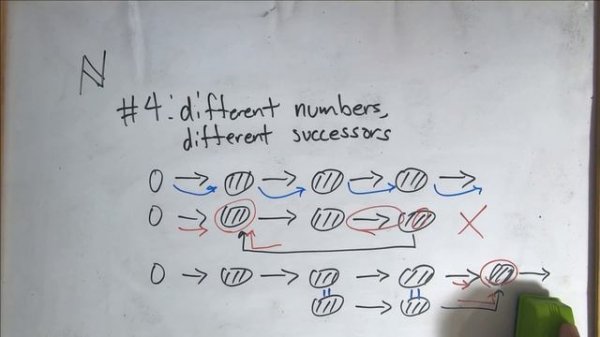 ℕ
#4: different numbers,
different successors
0 → → → →
0 → → → X
0 → → → → →
= =
→